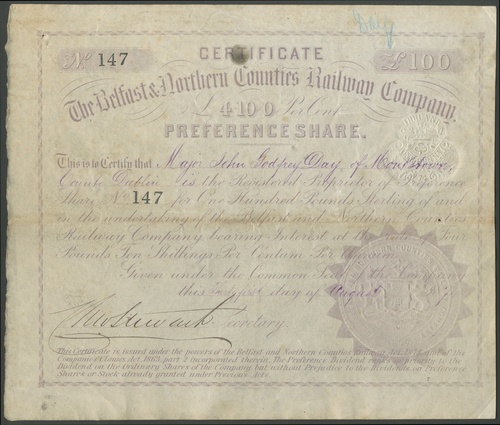 Day
No 147
CERTIFICATE
£100
The Belfast & Northern Counties Railway Company.
£4·10·0 Per Cent
PREFERENCE SHARE.
This is to Certify that Major John Godfrey Day of Monkstown
County Dublin is the Registered Proprietor of Preference
Share No 147 for One Hundred Pounds Sterling of and
in the undertaking of the Belfast and Northern Counties
Railway Company bearing Interest at the rate of Four
Pounds Ten Shillings Per Centum Per Annum
Given under the Common Seal of the Company
this day of August
Chas Stewart Secretary.
This Certificate is issued under the powers of the Belfast and Northern Counties Railway Act, the
Companies Clauses Act, 1863, part 2 incorporated therein. The Preference Dividend ranks in priority to the
Dividend on the Ordinary Shares of the Company but without Prejudice to the Dividends on Preference
Shares or Stock already granted under Previous Acts.